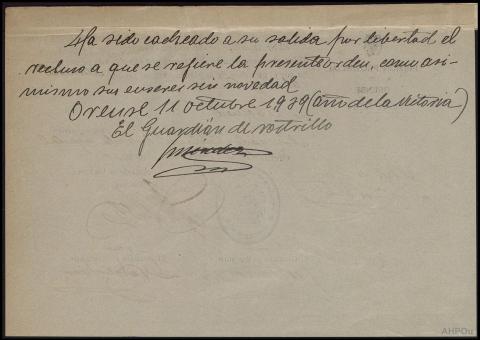 Ha sido cacheado a su salida por libertad el
recluso a que se refiere la presente orden, como asi-
mismo sus enseres sin novedad
Orense 11 octubre 1939 (año de la Vitoria)
El Guardián de rastrillo
Méndez
AHPOu